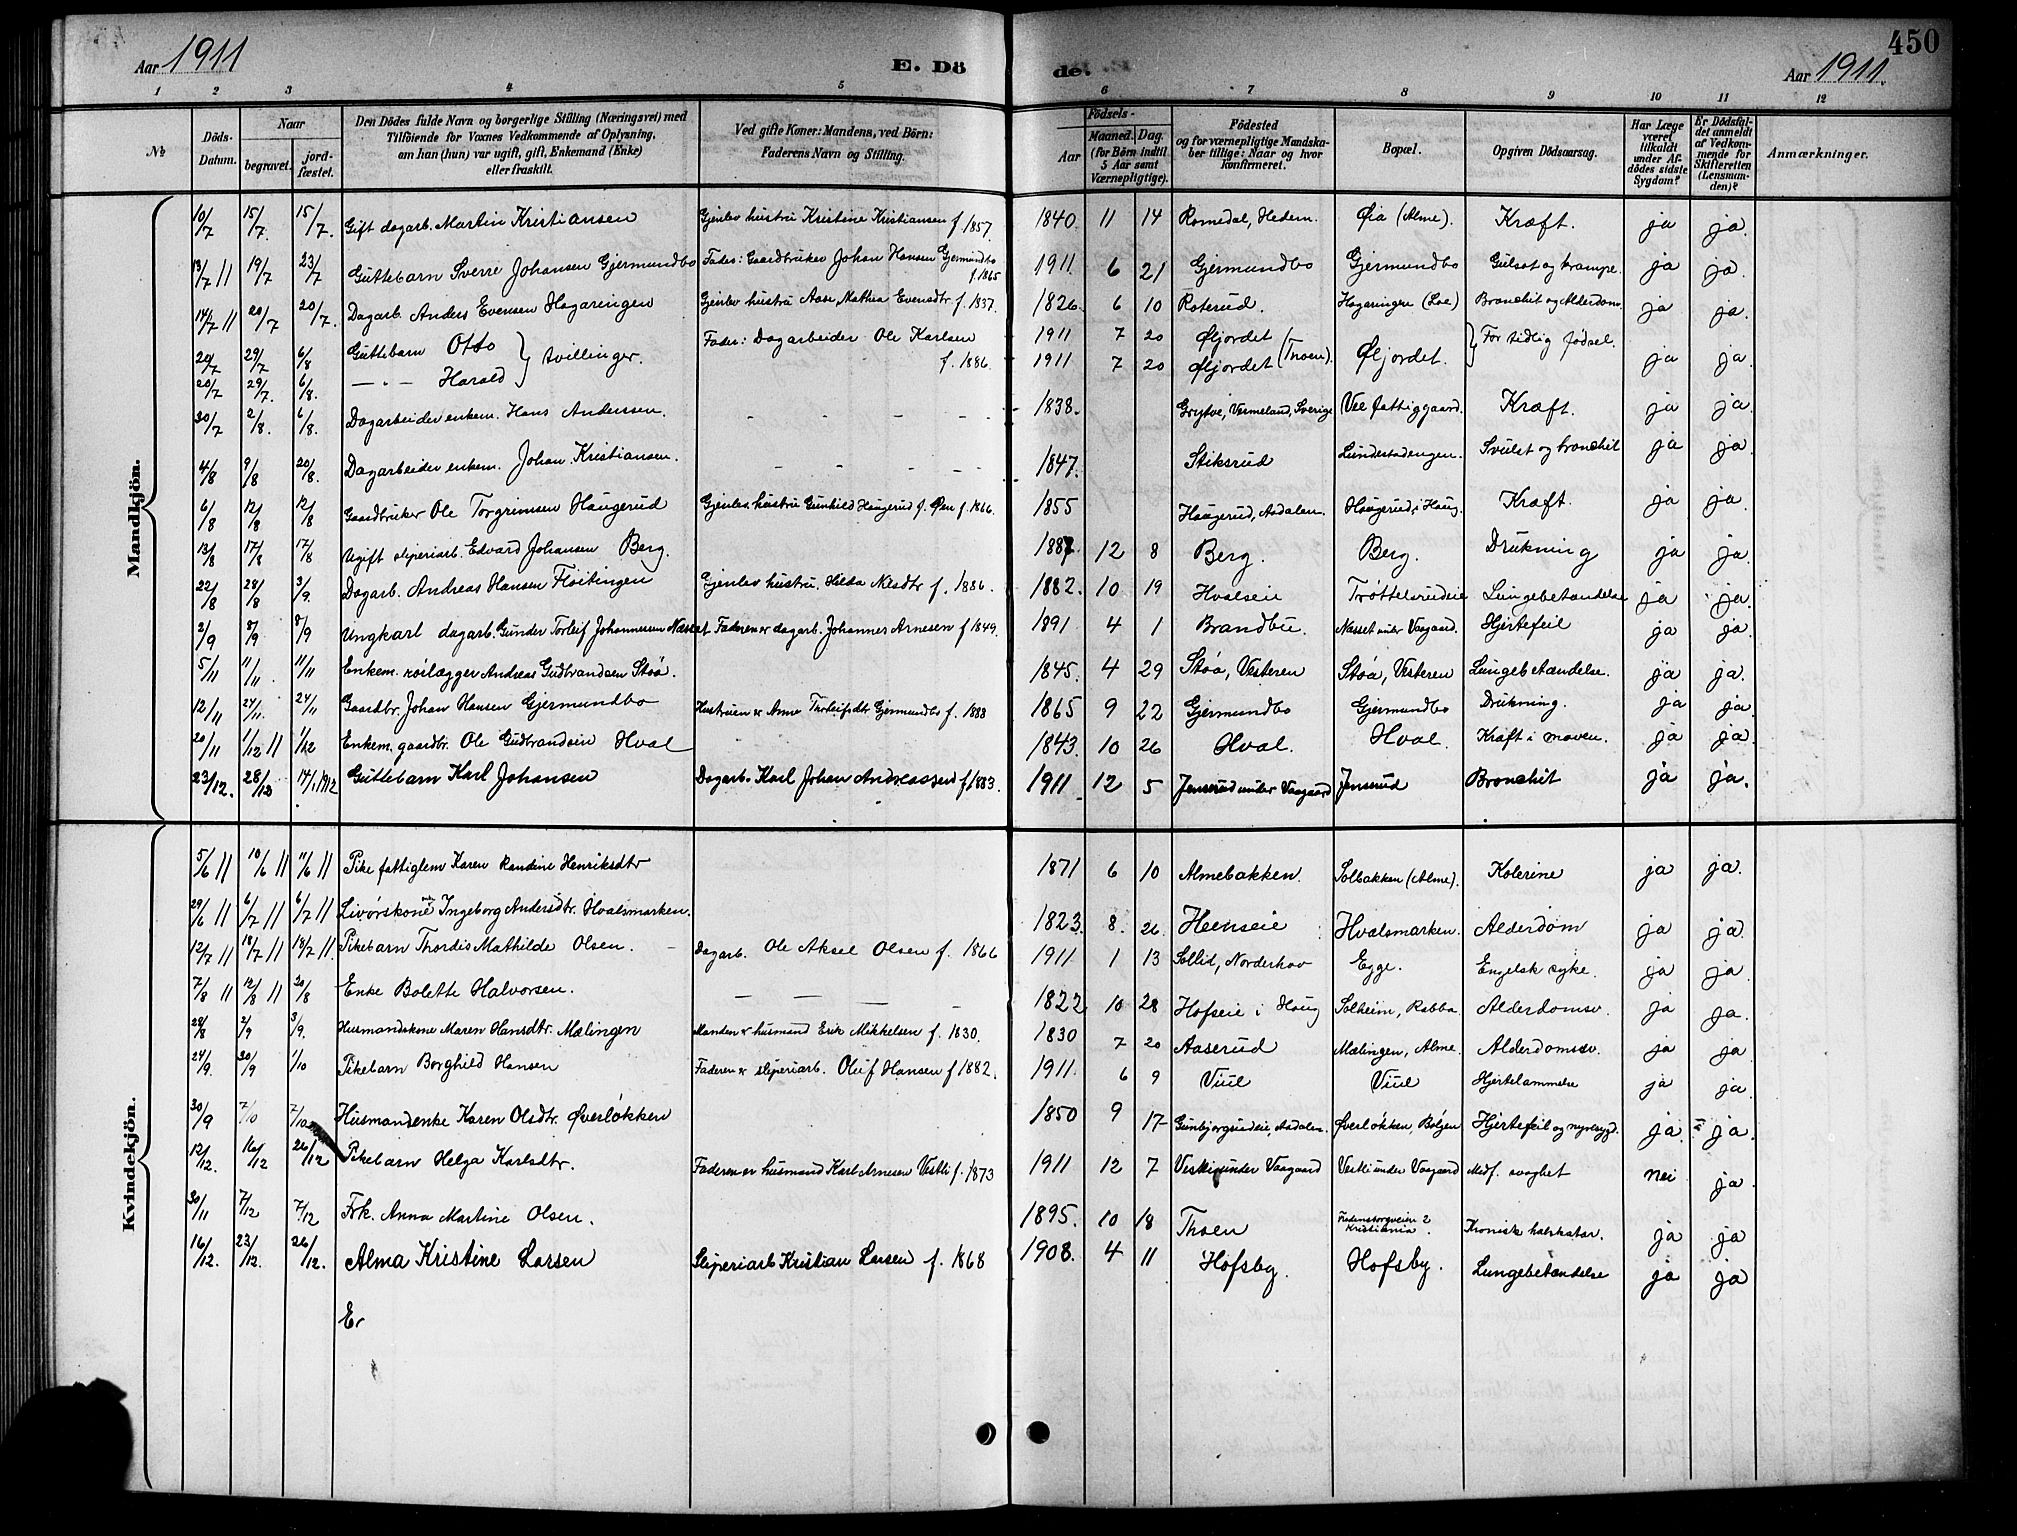 450
Aar 1911
E. Dö
de.
Aar 1911.
1 2 3 4 5 6 7 8 9 10 11 12
№
Döds-Datum.
Naar
begravet.
jordfæstet.
Den Dödes fulde Navn og borgerlige Stilling (Næringsvei) med
Tilföiende for Voxnes Vedkommende af Oplysning,
om han (hun) var ugift, gift, Enkemand (Enke)
eller fraskilt.
Ved gifte Koner: Mandens, ved Börn:
Faderens Navn og Stilling.
Födsels-
Aar
Maaned. Dag.
(for Börn indtil
5 Aar samt
Værnepligtige).
Födested
og for værnepligtige Mandska-
ber tillige: Naar og hvor
konfirmeret.
Bopæl.
Opgiven Dödsaarsag.
Har Læge
været
tilkaldt
under Af-
dödes sidste
Sygdom?
Er Dödsfal-
det anmeldt
af Vedkom-
mende for
Skifteretten
(Lensman-
den)?
Anmærkninger.
Mandkjön.
10/7 15/7. 15/7. Gift dagarb. Martin Kristiansen Gjenlev hustru Kristine Kristiansen f. 1857. 1840. 11 14 Romedal, Hedem. Øia (Alme). Kræft. ja ja.
13/7 11 19/7 23/7 Guttebarn Sverre Johansen Gjermundbo Fader: Gaardbruker Johan Hansen Gjermundbo f. 1865 1911. 6 21 Gjermundbo Gjermundbo Gulsot og krampe. ja ja.
14/7 11 20/7 20/7. Dagarb. Anders Evensen Hagaringen Gjenlev hustru Aase Mathea Evensdtr f. 1837. 1826. 6 10 Roterud. Hagaringen (Loe) Bronchit og Alderdom. ja ja.
20/7 29/7 6/8 Guttebarn Otto } tvillinger. Fader: Dagarbeider Ole Karlsen f. 1886. 1911 7 20 Øljordet (Thoen). Øljordet. } For tidlig fødsel. ja ja.
20/7 29/7. 6/8. — " — Harald 1911 7 20 Øljordet
30/7 2/8. 6/8. Dagarbeider enkem. Hans Anderssen. – – – – 1838. Grytve, Vermeland, Sverige (Vee fattiggaard. Kræft. ja ja.
4/8 9/8 20/8. Dagarbeider enkem. Johan Kristiansen. – – – – 1847. Stiksrud Lundestadengen. Svulst og bronchit ja ja.
6/8 12/8 12/8 Gaardbruker Ole Torgrimsen Haugerud Gjenlev. hustru Gunhild Haugerud f. Øen f. 1866. 1855 Haugerud, Aadalen. Haugerud i Haug. Kræft. ja ja.
13/8 17/8 17/8 Ugift sliperiarb. Edvard Johansen Berg. 1887. 12 8 Berg. Berg. Drukning ja ja.
22/8 28/8 3/9. Dagarb. Andreas Hansen Fløitingen Gjenlev hustru. Hilda Nilsdtr f. 1886. 1882. 10 19 Hvalseie Trøttelsrudeie Lungebetændelse ja ja.
2/9 8/9 8/9 Ungkarl dagarb. Gunder Torleif Johannesen Næset Faderen er dagarb. Johannes Arnesen f 1849. 1891. 4 1 Brandbu. Næsset under Vaagaard. Hjertefeil ja ja.
5/11 11/11 11/11 Enkem. rørlægger Andreas Gudbrandsen Støa. 1845. 4 29 Støa, Vesteren Støa, Vesteren Lungebetændelse. ja ja.
12/11 24/11. 24/11 Gaardbr. Johan Hansen Gjermundbo Hustruen er Anne Thorleifsdtr Gjermundbo f. 1888 1865 9 22 Gjermundbo Gjermundbo Drukning. ja ja.
20/11 1/12 11 1/12 Enkem. gaardbr. Ole Gudbrandsen Hval 1843. 10 26 Hval. Hval. Kræft i maven. ja ja.
23/12. 28/12 14/1 1912 Guttebarn Karl Johansen Dagarb. Karl Johan Andreassen f. 1883. 1911. 12 5 Jenserud under Vaagaard Jenserud Bronchit ja ja.
Kvindekjön.
5/6 11 10/6 11 11/6 11 Pike fattiglem Karen Randine Henriksdtr 1871 6 10 Almebakken. Solbakken (Alme). Kolerine ja ja.
29/6 11 6/7 11 6/7 11 Livørskone Ingeborg Andersdtr. Hvalsmarken. 1823. 8. 26. Heenseie Hvalsmarken. Alderdom ja ja.
12/7 11 18/7 11 18/7 11. Pikebarn Thordis Mathilde Olsen. – Dagarb. Ole Aksel Olsen f. 1866 1911. 1 13 Sollid, Norderhov Egge. Engelsk syke. ja ja.
7/8 11 12/8 11 20/8 Enke Bolette Halvorsen. – – – – 1822 10 28 Hofseie i Haug Solheim, Rabba. Alderdomsv. ja ja.
28/8 2/9 3/9. Husmandskone Maren Hansdtr. Mælingen Manden er husmand Erik Mikkelsen f. 1830. 1830 7 20 Aaserud Mælingen, Alme. Alderdomssv. ja ja.
24/9. 30/9 1/10 Pikebarn Borghild Hansen Faderen er sliperiarb. Oluf Hansen f 1882. 1911. 6 9 Viul Viul Hjertelammelse ja ja.
30/9 7/10 7/10 Husmandsenke Karen Olsdtr. Øverløkken 1850 9 17 Gunbjørgsrudeie, Aadalen. Øverløkken, Bølgen Hjertefeil og nyresygd. ja. ja.
12/12. 16/12 26/12 Pikebarn Helga Karlsdtr. Faderen er husmand Karl Arnesen Vestli f. 1873 1911 12 7 Vestli under Vaagaard Vestli under Vaagaard Medf. svaghet nei ja.
30/11 7/12 7/12 Frk. Anna Martine Olsen. 1895. 10 18 Thoen Fredensborgveien 2 Kristiania. Kronisk halskatar. ja ja
16/12. 23/12. 26/12. Alma Kristine Larsen Sliperiarb Kristian Larsen f. 1868 1908. 4 11 Hofsby. Hofsby. Lungebetændelse ja ja
Er